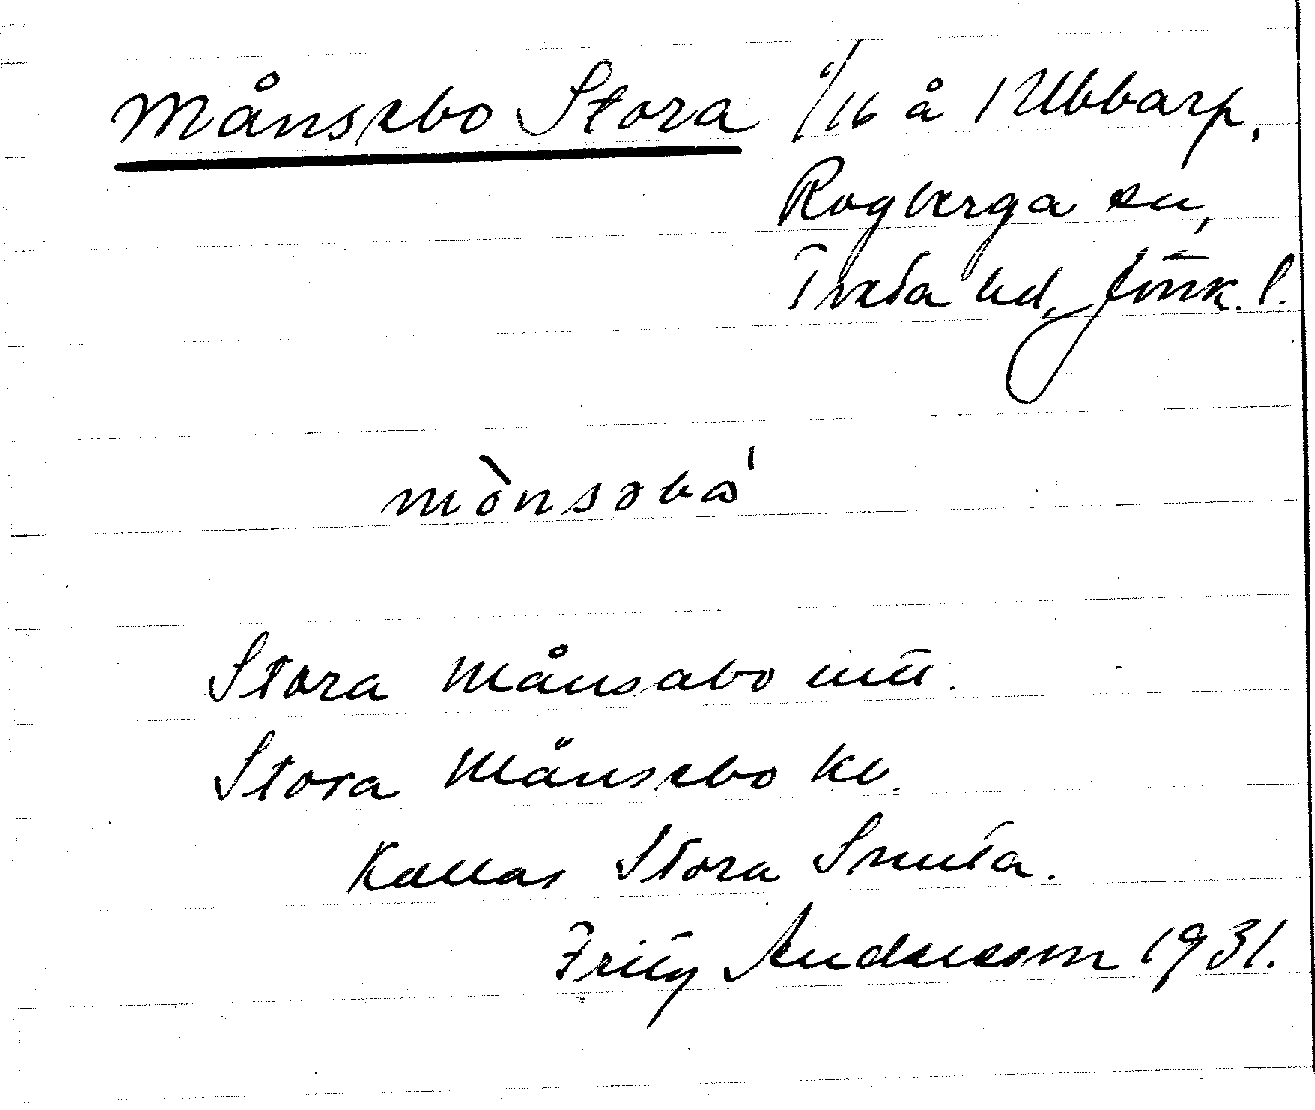 Månsebo Stora 1/16 å 1 Ubbarp,
Rogberga sn,
Tveta hd, Jönk. l.
mònsəbó
Stora Månsabo mtl.
Stora Månsebo kv.
Kallas Stora Smula.
Fritz Andersson 1931.